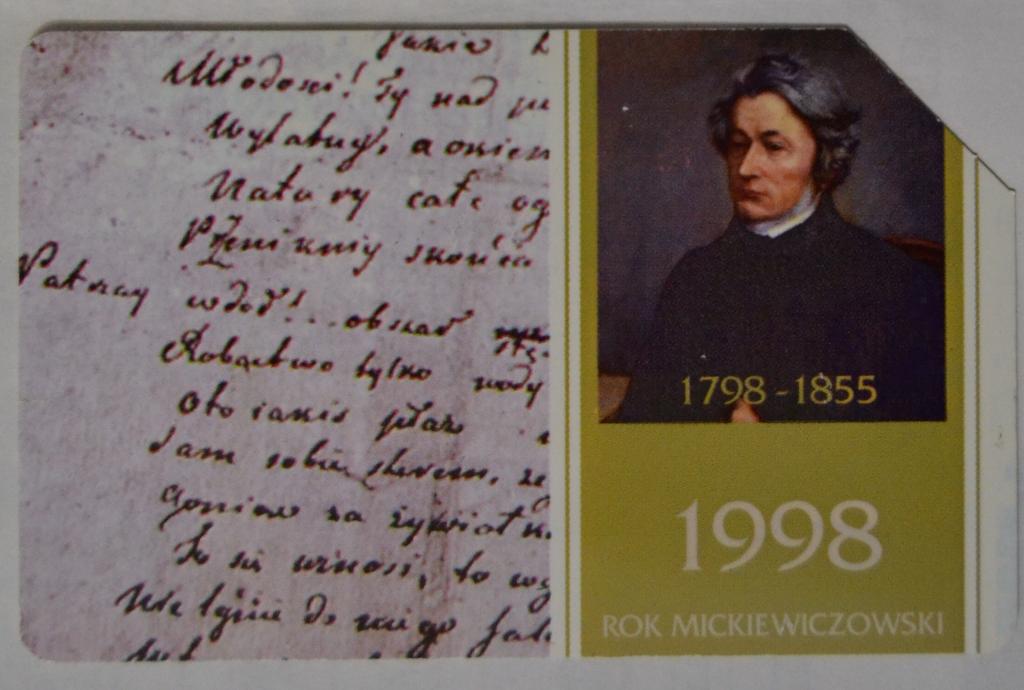 Młodości! Ty nad
Wylatuy, a okiem
Natury całe og
Przeniknij z końca
Patrzay w dół! .. obszar
Robactwo tylko wody
oto iakiś płaz
Sam sobie sterem, że
Goniąc za żywiołk
To się wznosi, to wg
Nie lgnie do niego fal
1798 - 1855
1998
ROK MICKIEWICZOWSKI